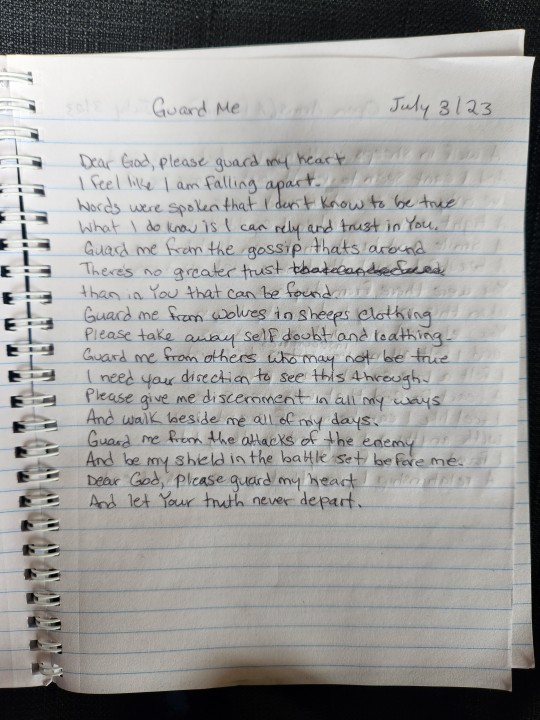 Guard Me July 3/23
Dear God, please guard my heart
I feel like I am falling apart.
Words were spoken that I don't know to be true
What I do know is I can rely and trust in You.
Guard me from the gossip thats around
There's no greater trust
than in You that can be found.
Guard me from wolves in sheeps clothing
Please take away self doubt and loathing.
Guard me from others who may not be true
I need your direction to see this through.
Please give me discernment in all my ways
And walk beside me all of my days.
Guard me from the attacks of the enemy
And be my shield in the battle set before me.
Dear God, please guard my heart
And let Your truth never depart.